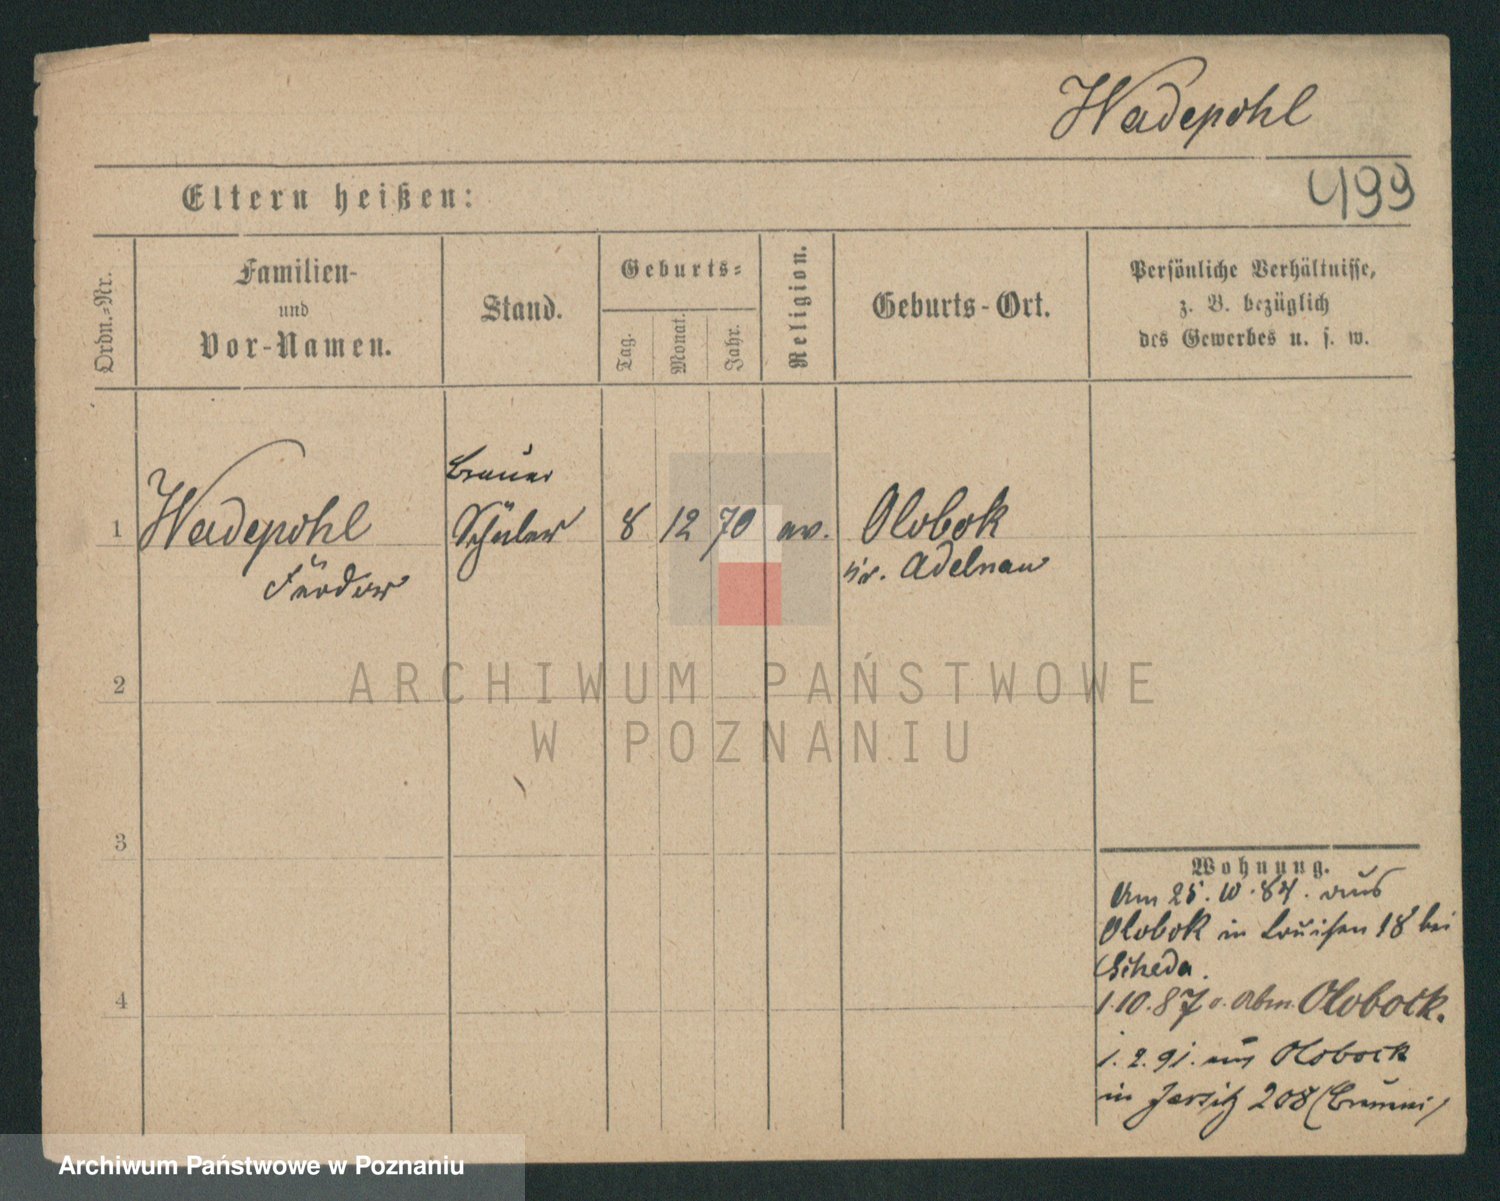 Wadepohl
499
Eltern heißen:
Ordn.-Nr.
Familien-
und
Vor-Namen.
Stand.
Geburts-
Tag.
Monat.
Jahr.
Religion.
Geburts-Ort.
Persönliche Verhältnisse,
z. B. bezüglich
des Gewerbes u. s. w.
Brauer
1 Wadepohl Schüler 8 12 70 ev. Olobok
Kr. Adelnau
2
3
4
Wohnung.
Am 25. 10. 84. aus
Olobok in Louisen 18 bei
Scheda.
1.10.87 Abm. Olobock.
1. 2. 91. aus Olobock
in Jersitz 208
ARCHIWUM PAŃSTWOWE
W POZNANIU
Archiwum Państwowe w Poznaniu